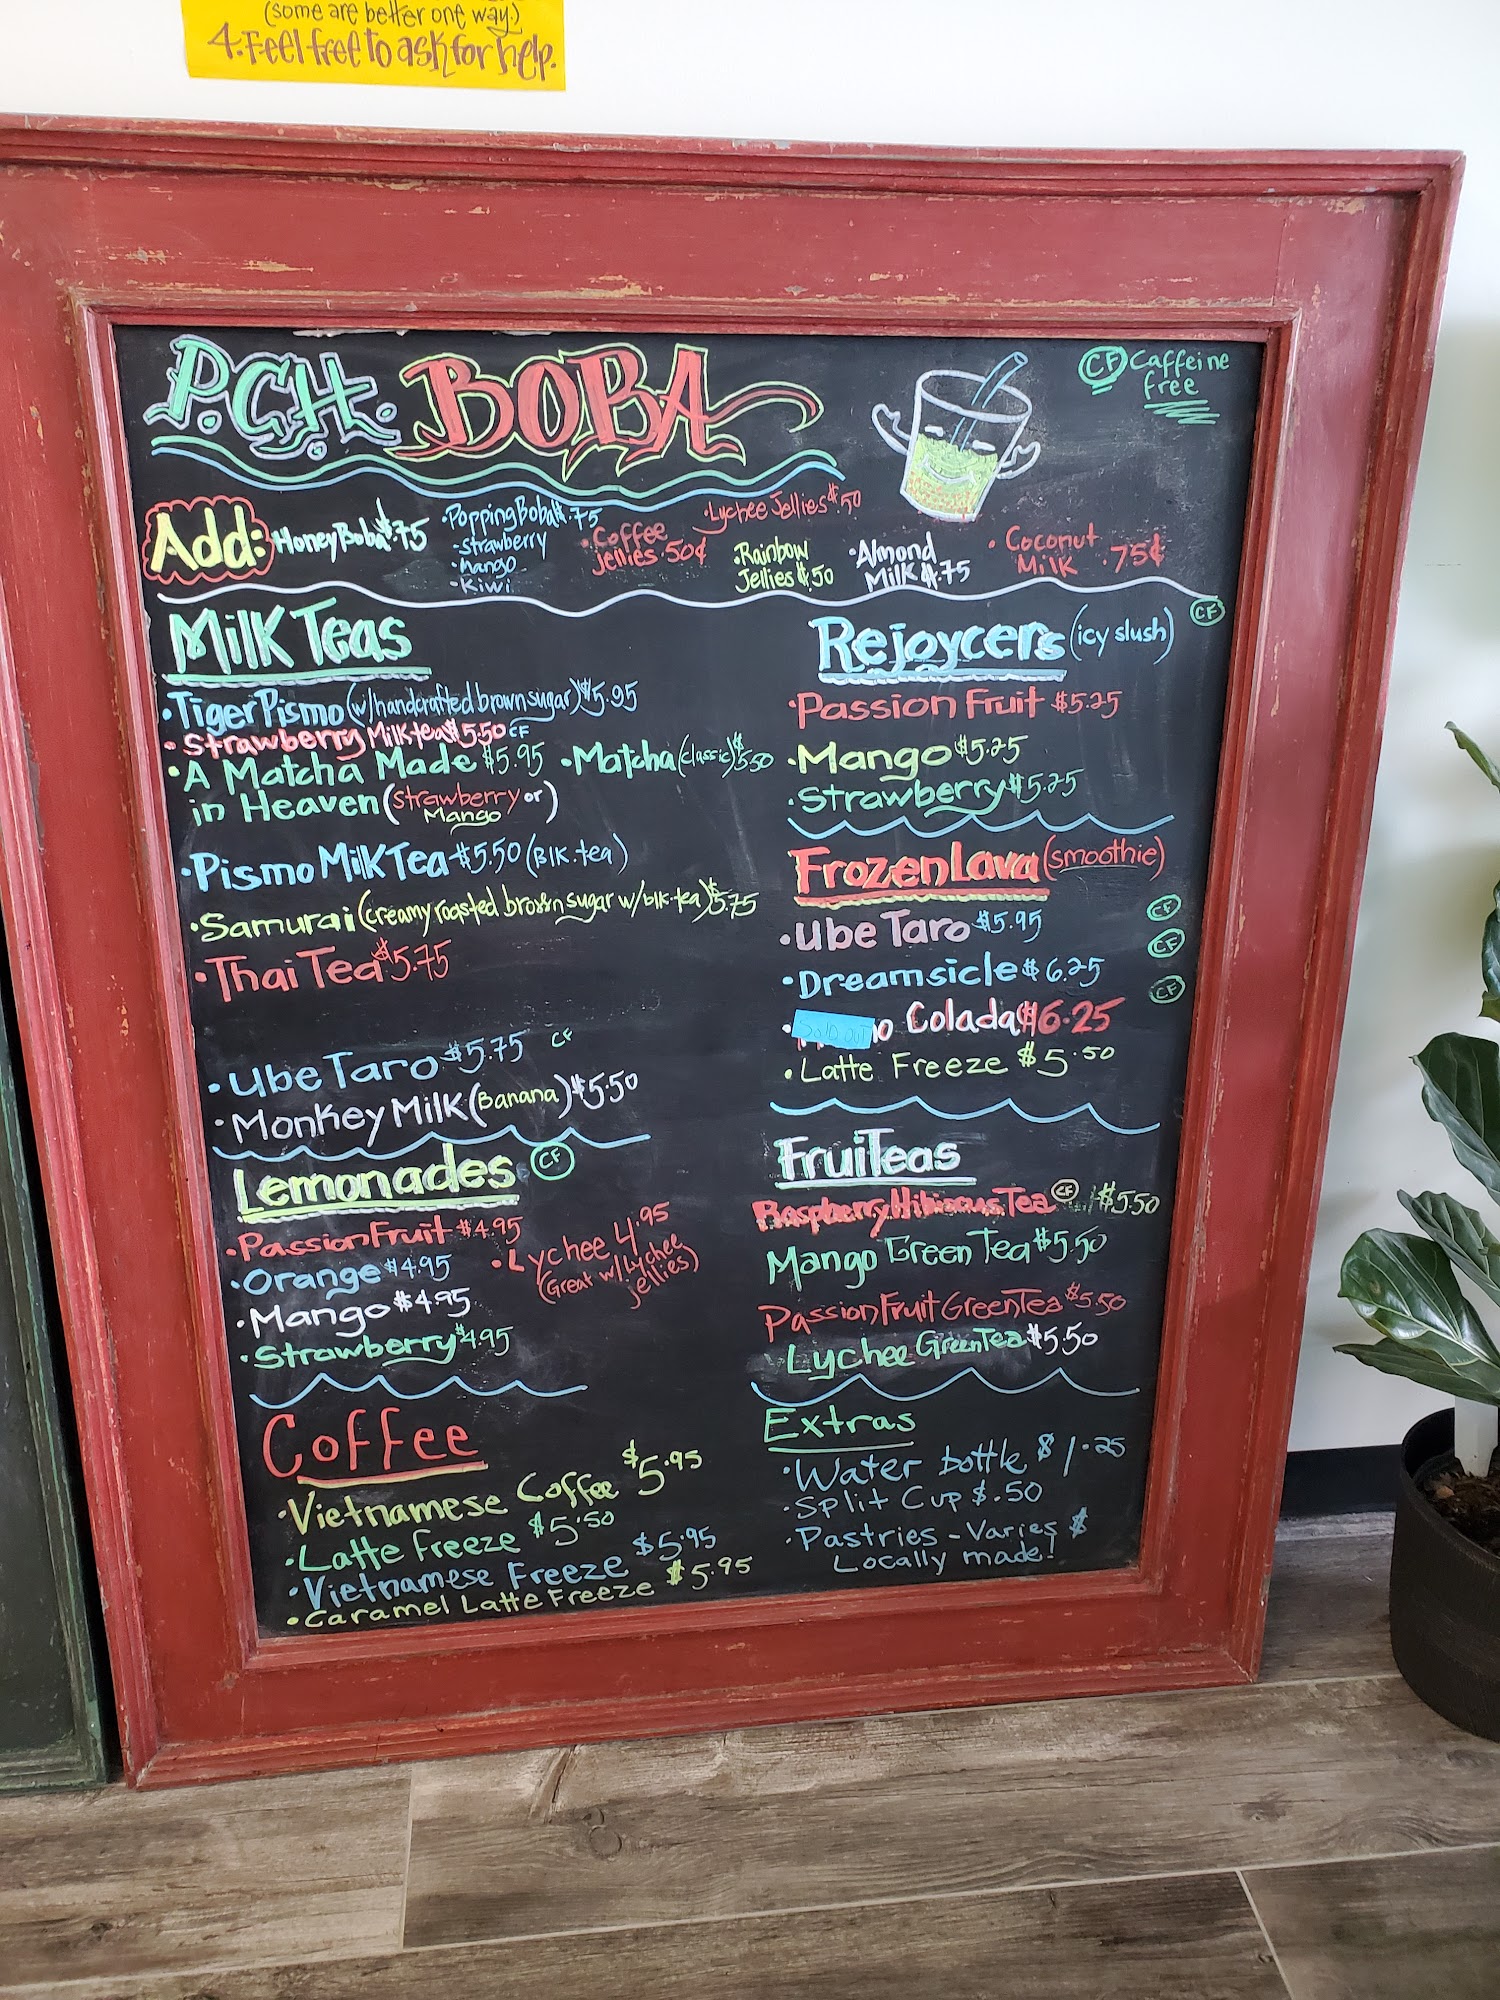 (some are better one way.)
4. Feel free to ask for help.
P.C.H. BOBA
CF Caffeine
free
Add:
Honey Boba $.75
·Popping Boba $.75
-Strawberry
-Mango
-Kiwi
·Coffee
Jellies .50¢
·Lychee Jellies $.50
·Rainbow
Jellies $.50
·Almond
Milk $.75
·Coconut
Milk .75¢
Milk Teas
·Tiger Pismo (w/handcrafted brown sugar) $5.95
·Strawberry Milk tea $5.50 CF
·A Matcha Made $5.95
in Heaven (strawberry or
Mango)
·Matcha (classic) $5.50
·Pismo Milk Tea $5.50 (Blk. tea)
·Samurai (creamy roasted brown sugar w/blk tea) $5.75
·Thai Tea $5.75
·Ube Taro $5.75 CF
·Monkey Milk (Banana) $5.50
Lemonades CF
·Passion Fruit $4.95
·Orange $4.95
·Mango $4.95
·Strawberry $4.95
·Lychee 4.95
(Great w/Lychee
jellies)
Coffee
·Vietnamese Coffee $5.95
·Latte Freeze $5.50
·Vietnamese Freeze $5.95
·Caramel Latte Freeze $5.95
Rejoycers (icy slush) CF
·Passion Fruit $5.25
·Mango $5.25
·Strawberry $5.25
Frozen Lava (smoothie)
·Ube Taro $5.95 CF
·Dreamsicle $6.25 CF
·SOLD OUT o Colada $6.25 CF
·Latte Freeze $5.50
FruiTeas
Raspberry Hibiscus Tea CF $5.50
Mango Green Tea $5.50
Passion Fruit Green Tea $5.50
Lychee Green Tea $5.50
Extras
·Water bottle $1.25
·Split Cup $.50
·Pastries - Varies $
Locally made!